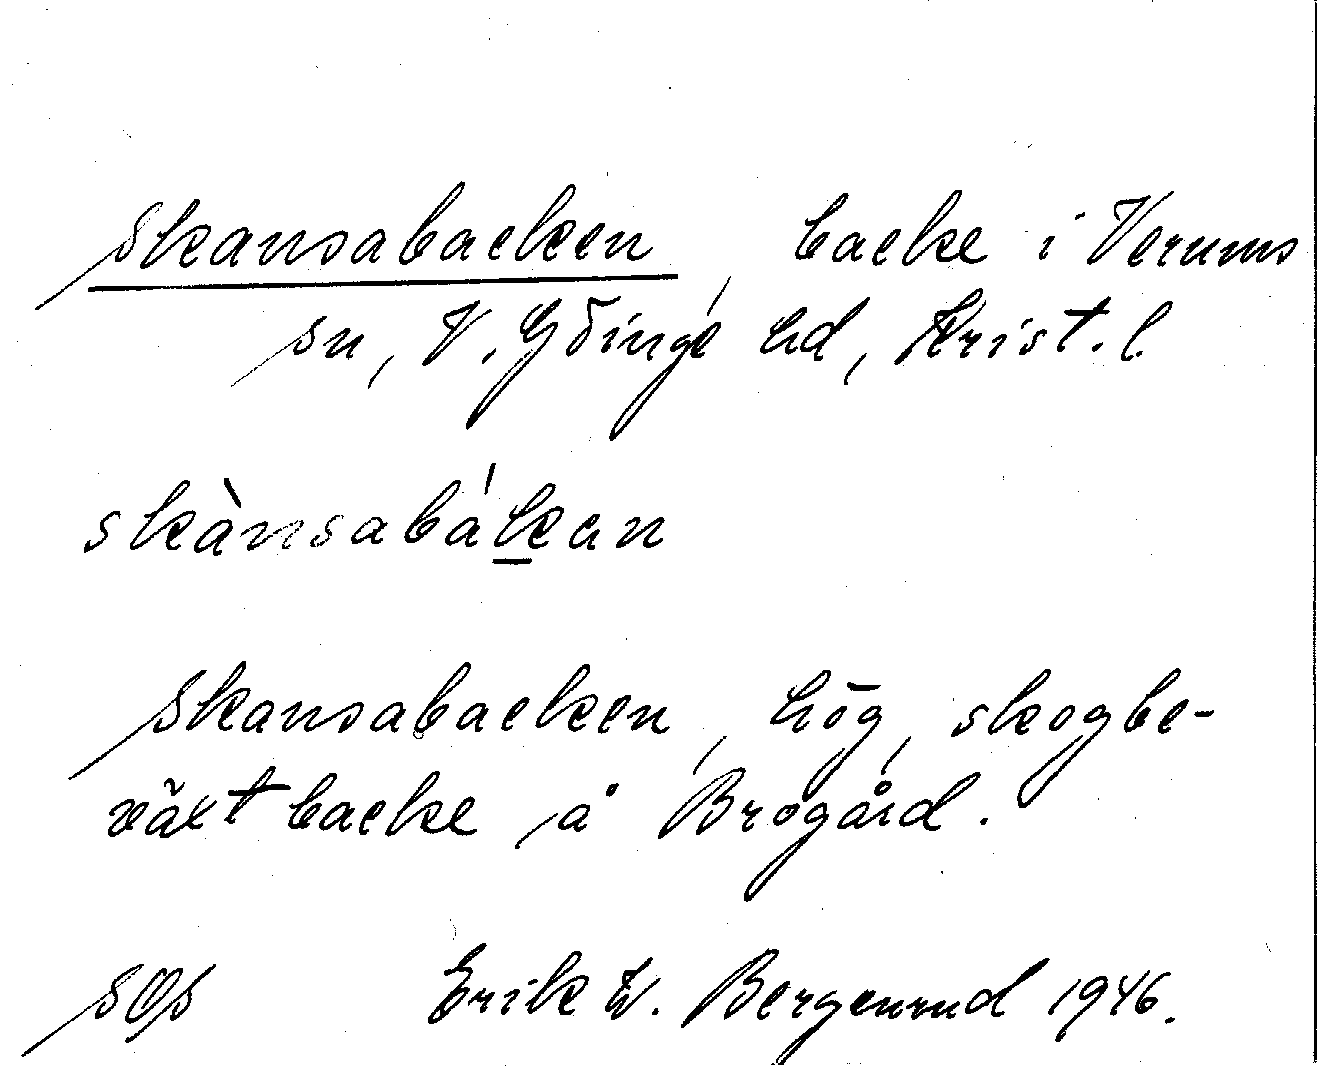 Skansabacken, backe i Verums
sn, V. Göinge hd, Krist. l.
skànsabákan
Skansabacken, hög, skogbe-
växt backe å Brogård.
SOS Erik W. Bergenrud 1946.